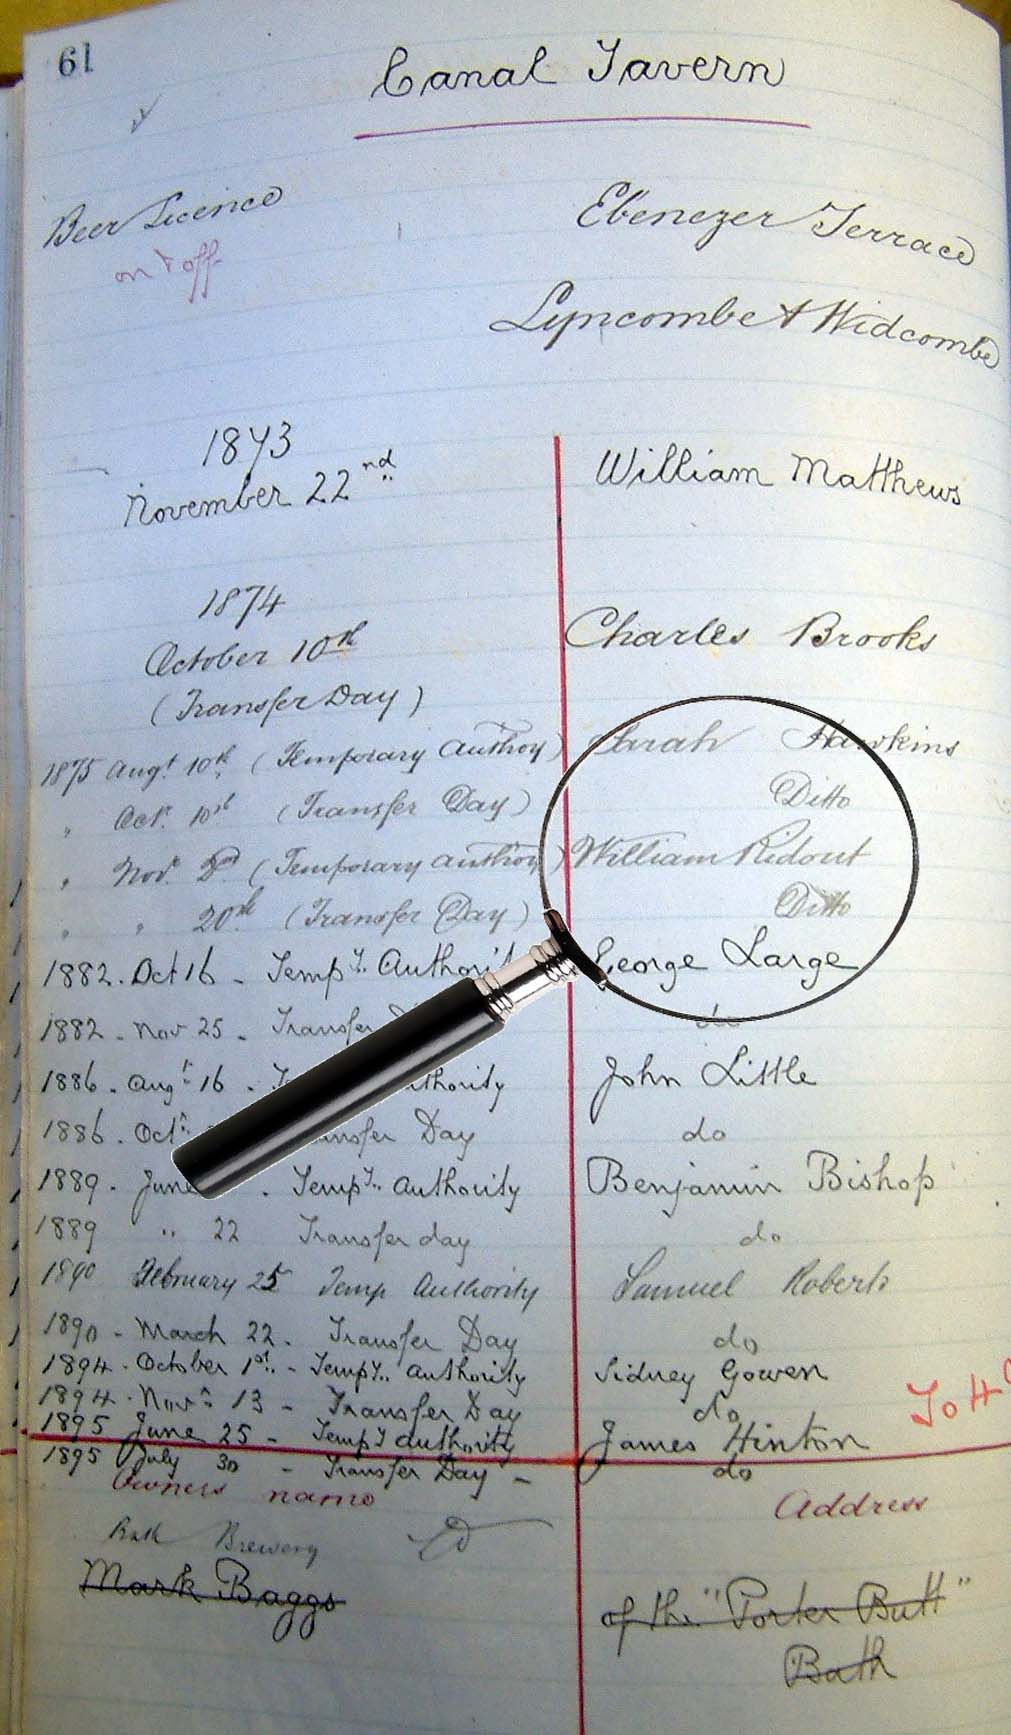 61
Canal Tavern
Beer Licence
on & off
Ebenezer Terrace
Lyncombe & Widcombe
1873
November 22nd William Matthews
1874
October 10th Charles Brooks
(Transfer Day)
1875 Augt 10th (Temporary Authoy) Sarah Hawkins
" Oct. 10th (Transfer Day) Ditto
" Nov. 2nd (Temporary Authoy) William Ridout
" " 20th (Transfer Day) Ditto
1882. Oct 16 - Tempy. Authority George Large
1882 - Nov 25 - Transfer do
1886 - Augt 16 - thority John Little
1886. Oct. ansfer Day do
1889 - June . Tempy. Authority Benjamin Bishop
1889 " 22 Transfer day do
1890 February 25 Temp Authority Samuel Roberts
1890 - March 22. Transfer Day do
1894 - October 1st. - Tempy. Authority Sidney Gowen
1894 - Novr 13 - Transfer Day do
To H
1895 June 25 - Tempy Authority James Hinton
1895 July 30 - Transfer Day - do
Owners name Address
Bath Brewery Ld
Mark Baggs of the "Porter Butt"
Bath